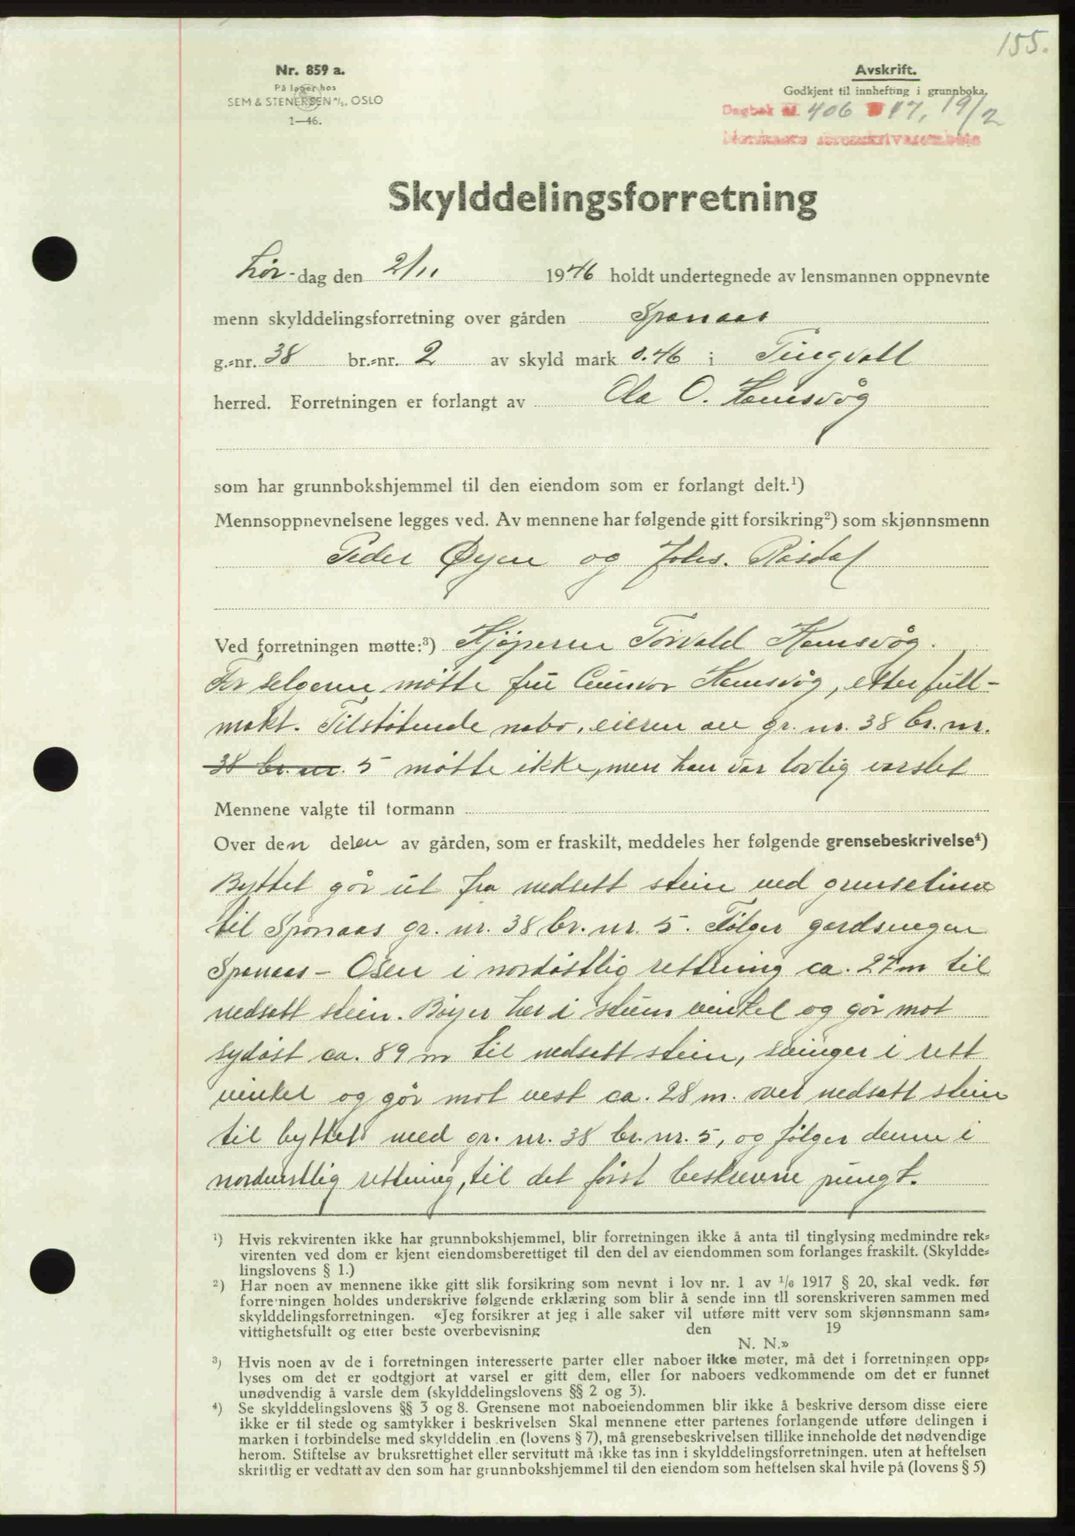 155.
Nr. 859 a.
På lager hos
SEM & STENERSEN A/S, OSLO
1—46.
Avskrift.
Godkjent til innhefting i grunnboka.
Dagbok nr. 406 47, 19/2
Nordmøre sorenskriverembete
Skylddelingsforretning
Lør-dag den 2/11 1946 holdt undertegnede av lensmannen oppnevnte
menn skylddelingsforretning over gården Sponaas
g.=nr. 38 br.=nr. 2 av skyld mark 0.46 i Tingvoll
herred. Forretningen er forlangt av Ola O. Hamsvåg
som har grunnbokshjemmel til den eiendom som er forlangt delt.¹)
Mennsoppnevnelsene legges ved. Av mennene har følgende gitt forsikring²) som skjønnsmenn
Peder Øyen og Johs. Råsdal
Ved forretningen møtte:³) Kjøperen Torvald Hamsvåg.
For selgeren møtte fru Gunvor Hamsvåg, etter full-
makt. Tilstøtende nabo, eieren av gr. nr. 38 br. nr.
38 br. nr. 5 møtte ikke, men han var lovlig varslet
Mennene valgte til formann
Over den delen av gården, som er fraskilt, meddeles her følgende grensebeskrivelse⁴)
Byttet går ut fra nedsett stein ved grenselina
til Sponaas gr. nr. 38 br. nr. 5. Følger gardsvegen
Sponaas – Osen i nordøstlig rettning ca. 27 m til
nedsatt stein. Bøyer her i stum vinkel og går mot
sydøst ca. 89 m til nedsett stein, svinger i rett
vinkel og går mot vest ca. 28 m. over nedsatt stein
til byttet med gr. nr. 38 br. nr. 5, og følger denne i
nordvestlig rettning, til det først beskrevne pungt.
¹) Hvis rekvirenten ikke har grunnbokshjemmel, blir forretningen ikke å anta til tinglysing medmindre rek=
virenten ved dom er kjent eiendomsberettiget til den del av eiendommen som forlanges fraskilt. (Skyldde=
lingslovens § 1.)
²) Har noen av mennene ikke gitt slik forsikring som nevnt i lov nr. 1 av 1/6 1917 § 20, skal vedk. før
forretningen holdes underskrive følgende erklæring som blir å sende inn til sorenskriveren sammen med
skylddelingsforretningen. «Jeg forsikrer at jeg i alle saker vil utføre mitt verv som skjønnsmann sam=
vittighetsfullt og etter beste overbevisning den 19
N. N.»
³) Hvis noen av de i forretningen interesserte parter eller naboer ikke møter, må det i forretningen opp=
lyses om det er godtgjort at varsel er gitt dem, eller for naboers vedkommende om det er funnet
unødvendig å varsle dem (skylddelingslovens §§ 2 og 3).
⁴) Se skylddelingslovens §§ 3 og 8. Grensene mot naboeiendommen blir ikke å beskrive dersom disse eiere
ikke er til stede og samtykker i beskrivelsen Skal mennene etter partenes forlangende utføre delingen i
marken i forbindelse med skylddelin en (lovens § 7), må grensebeskrivelsen tillike inneholde det nødvendige
herom. Stiftelse av bruksrettighet eller servitutt må ikke tas inn i skylddelingsforretningen, uten at heftelsen
skriftlig er vedtatt av den som har grunnbokshjemmel til den eiendom som heftelsen skal hvile på (lovens § 5)